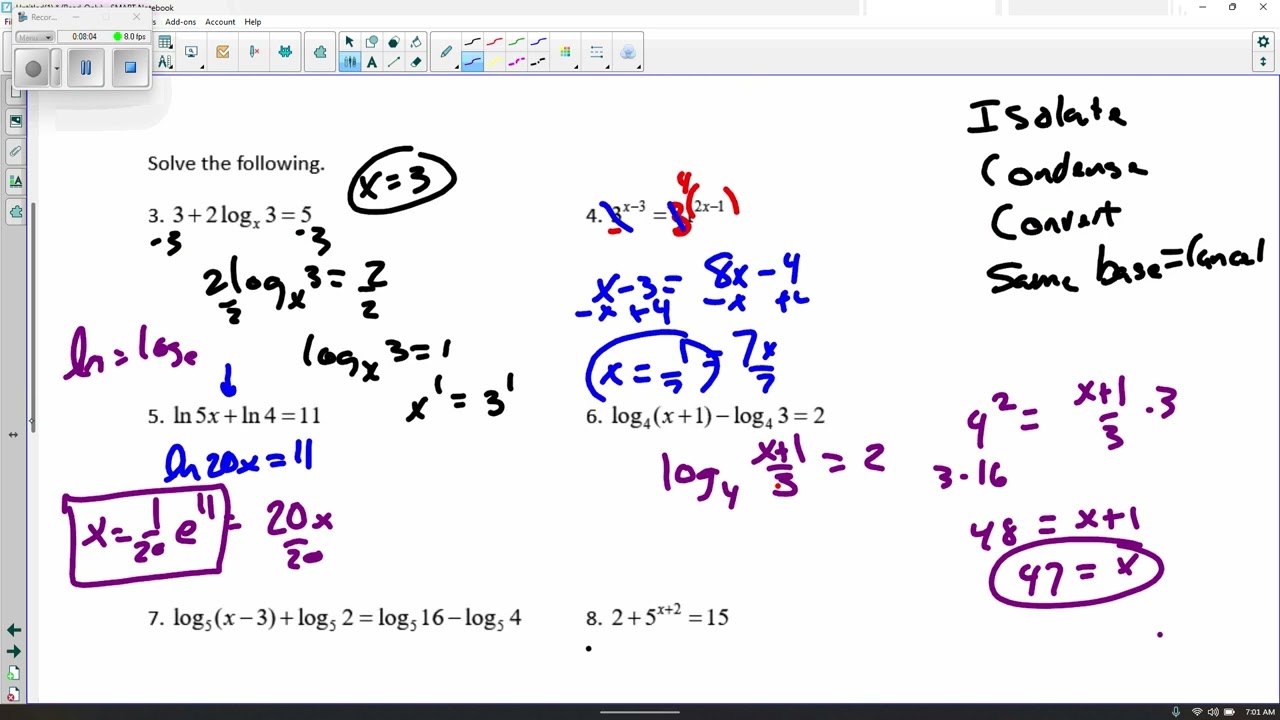 Recor...
SMART Notebook
Add-ons Account Help
Menu
0:08:04 8.0 fps
Isolate
Condense
Convert
Same base = Cancel
Solve the following.
x = 3
3. 3 + 2 log_x 3 = 5
-3 -3
2 log_x 3 = 2
2 2
log_x 3 = 1
x^1 = 3^1
4. 3^(x-3) = ^(2x-1)
4( )
3
x - 3 = 8x - 4
-x +4 -x +4
x = 1/7 = 7x/7
ln = log_e
5. ln 5x + ln 4 = 11
ln 20x = 11
x = 1/20 e^11 = 20x/20
6. log_4 (x + 1) - log_4 3 = 2
log_4 (x+1)/3 = 2
4^2 = (x+1)/3 · 3
3 · 16
48 = x+1
47 = x
7. log_5 (x - 3) + log_5 2 = log_5 16 - log_5 4
8. 2 + 5^(x+2) = 15
7:01 AM